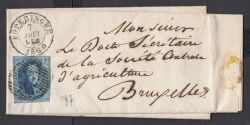 POPERINGHE
7
AOUT
1860
Monsieur
Le Docte Secrétaire
de la Société Centrale
d'agriculture
Bruxelles